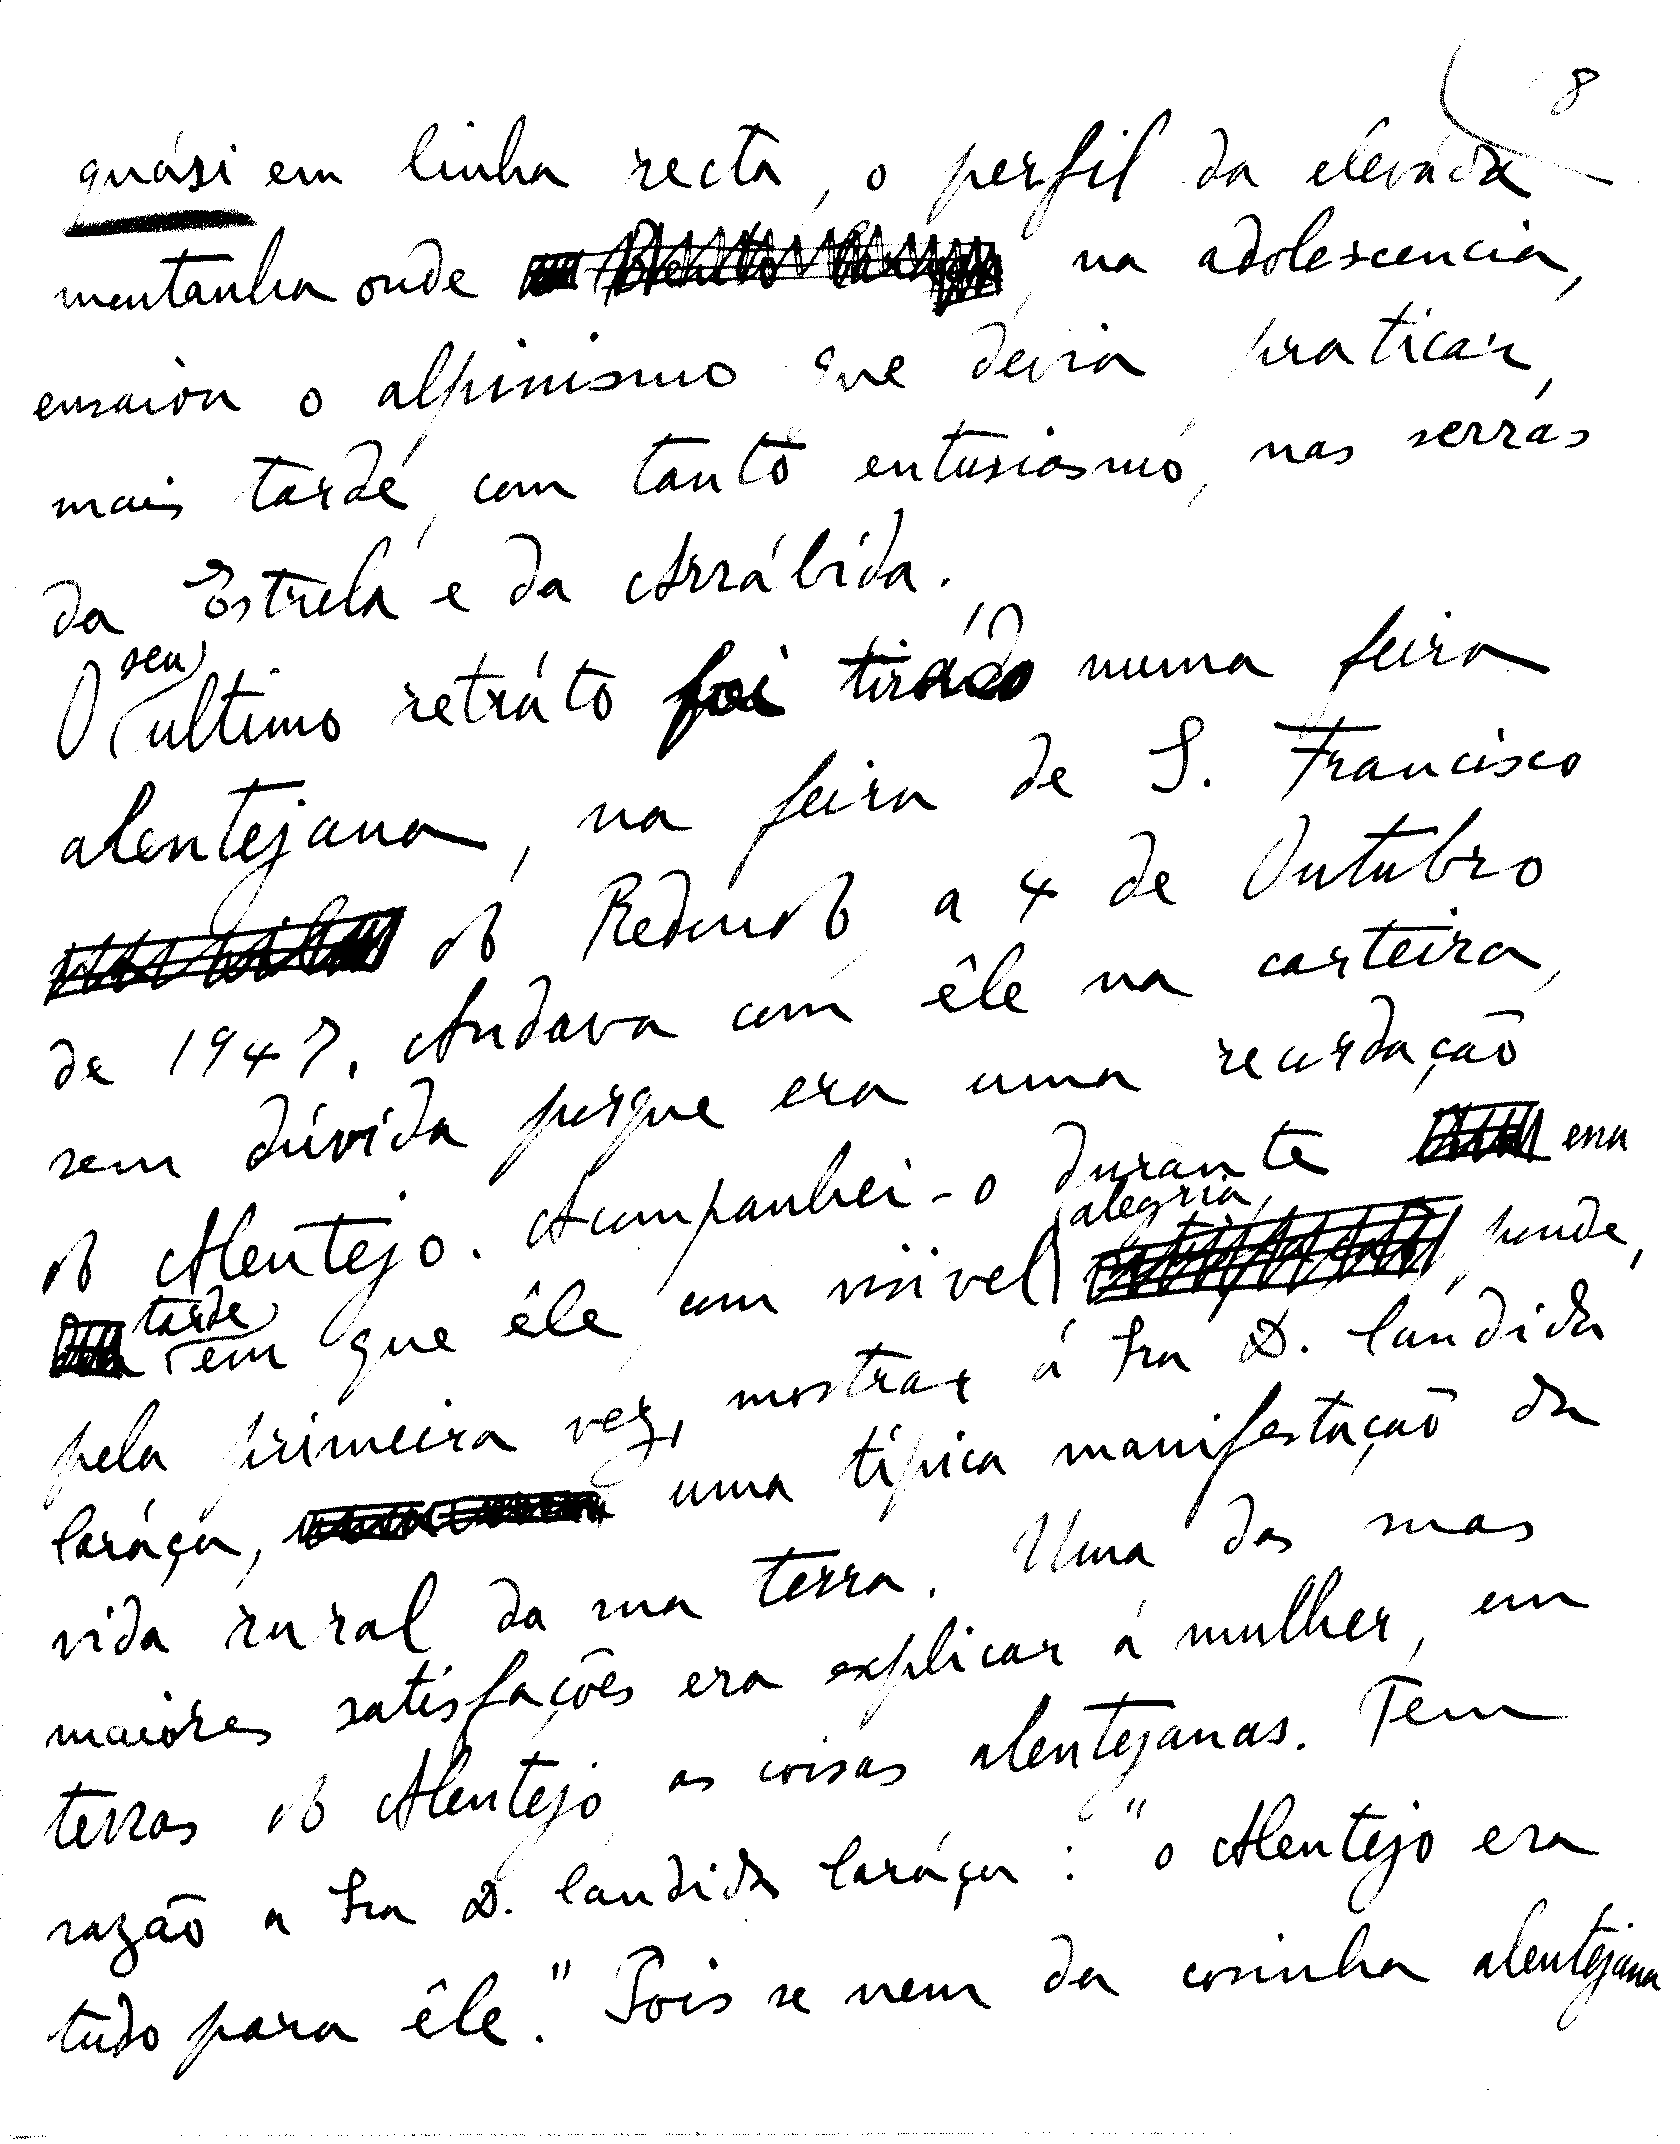 8
quási em linha recta, o perfil da elevada
montanha onde na adolescencia,
ensaiou o alpinismo que devia praticar,
mais tarde, com tanto entusiasmo, nas serras
da Estrela e da Arrábida.
O seu ultimo retrato foi tirado numa feira
alentejana, na feira de S. Francisco
do Redondo, a 4 de Outubro
de 1947. Andava com êle na carteira,
sem dúvida porque era uma recordação
do Alentejo. Acompanhei-o durante essa
tarde em que êle, com visivel alegria, poude,
pela primeira vez, mostrar á Sra D. Candida
Caráça, uma típica manifestação da
vida rural da sua terra. Uma das suas
maiores satisfações era explicar á mulher, em
terras do Alentejo, as coisas alentejanas. Tem
razão a Sra D. Candida Caráça: "o Alentejo era
tudo para êle." Pois se nem da cosinha alentejana